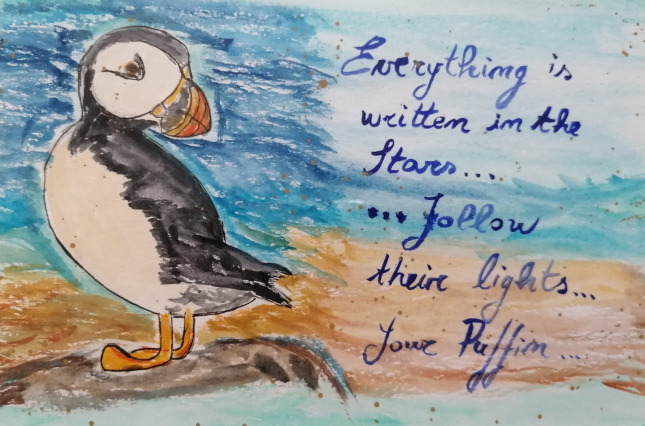 Everything is
written in the
Stars...
... Follow
their lights...
Your Puffin...